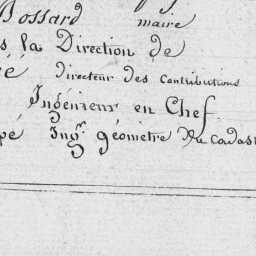 Bossard maire
s la Direction de
é directeur des contributions
Ingénieur en Chef.
pé Ingr. géomètre du cadast